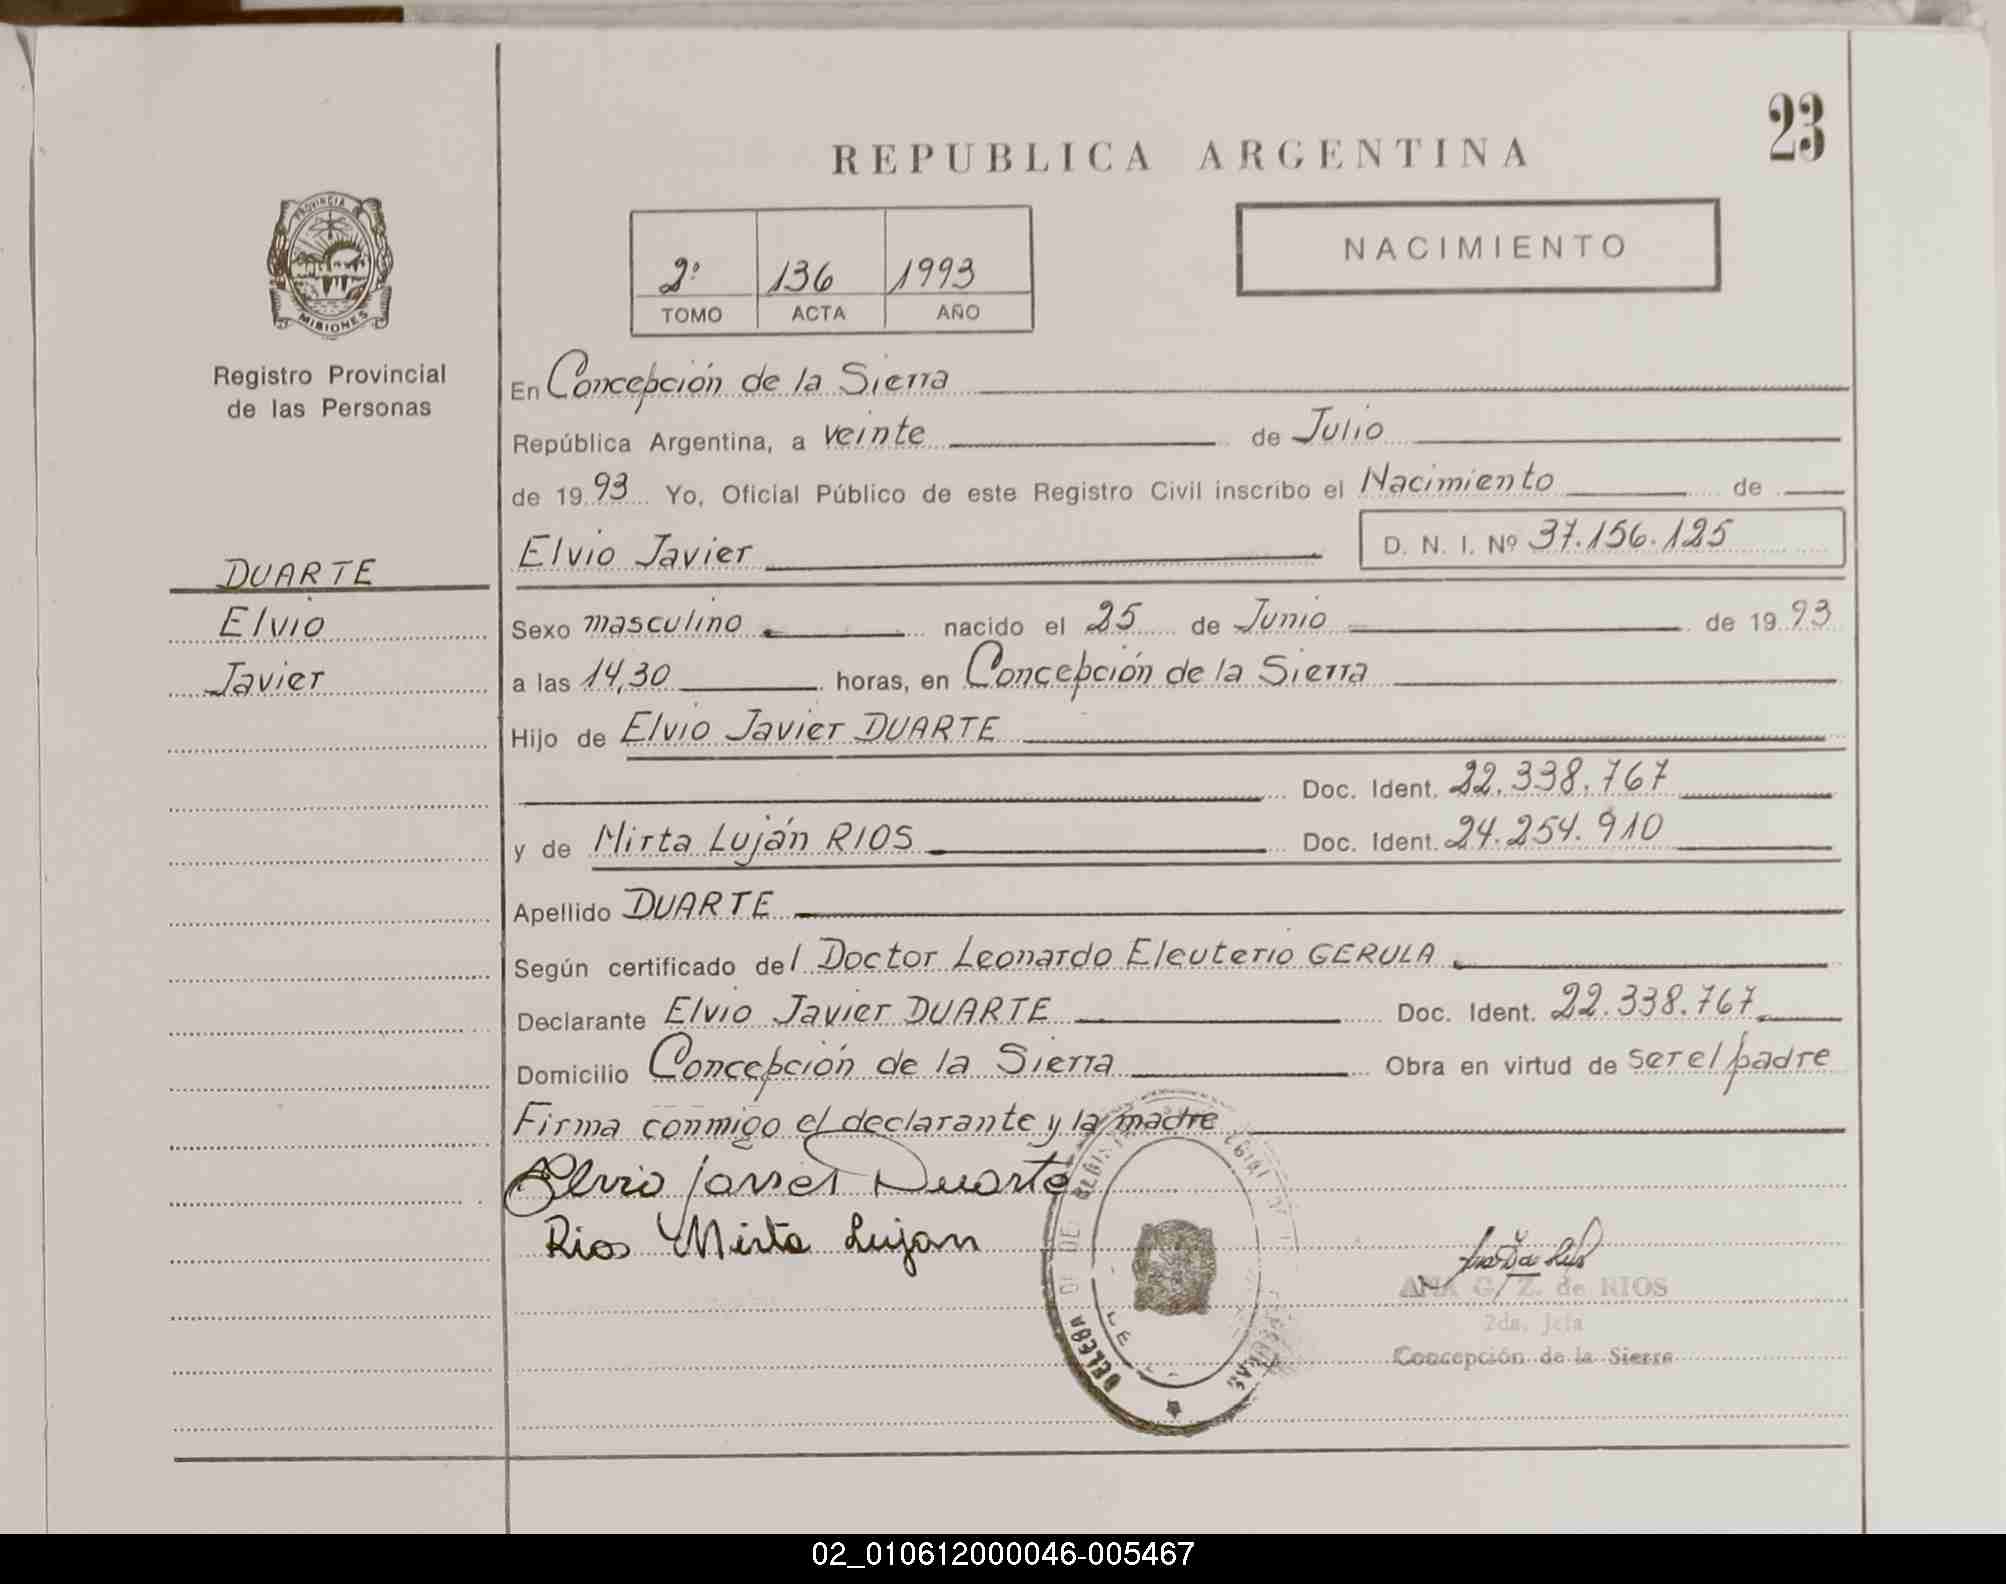 23
REPUBLICA ARGENTINA
NACIMIENTO
2º 136 1993
TOMO ACTA AÑO
PROVINCIA
MISIONES
Registro Provincial
de las Personas
DUARTE
Elvio
Javier
En Concepción de la Sierra
República Argentina, a veinte de Julio
de 1993 Yo, Oficial Público de este Registro Civil inscribo el Nacimiento de
Elvio Javier D. N. I. Nº 37.156.125
Sexo masculino nacido el 25 de Junio de 1993
a las 14,30 horas, en Concepción de la Sierra
Hijo de Elvio Javier DUARTE
Doc. Ident. 22.338.767
y de Mirta Luján RIOS Doc. Ident. 24.254.910
Apellido DUARTE
Según certificado del Doctor Leonardo Eleuterio GERULA
Declarante Elvio Javier DUARTE Doc. Ident. 22.338.767
Domicilio Concepción de la Sierra Obra en virtud de ser el padre
Firma conmigo el declarante y la madre
Elvio Javier Duarte
Rios Mirta Lujan
ANA G. Z. de RIOS
2da. Jefa
Concepción de la Sierra
02_010612000046-005467